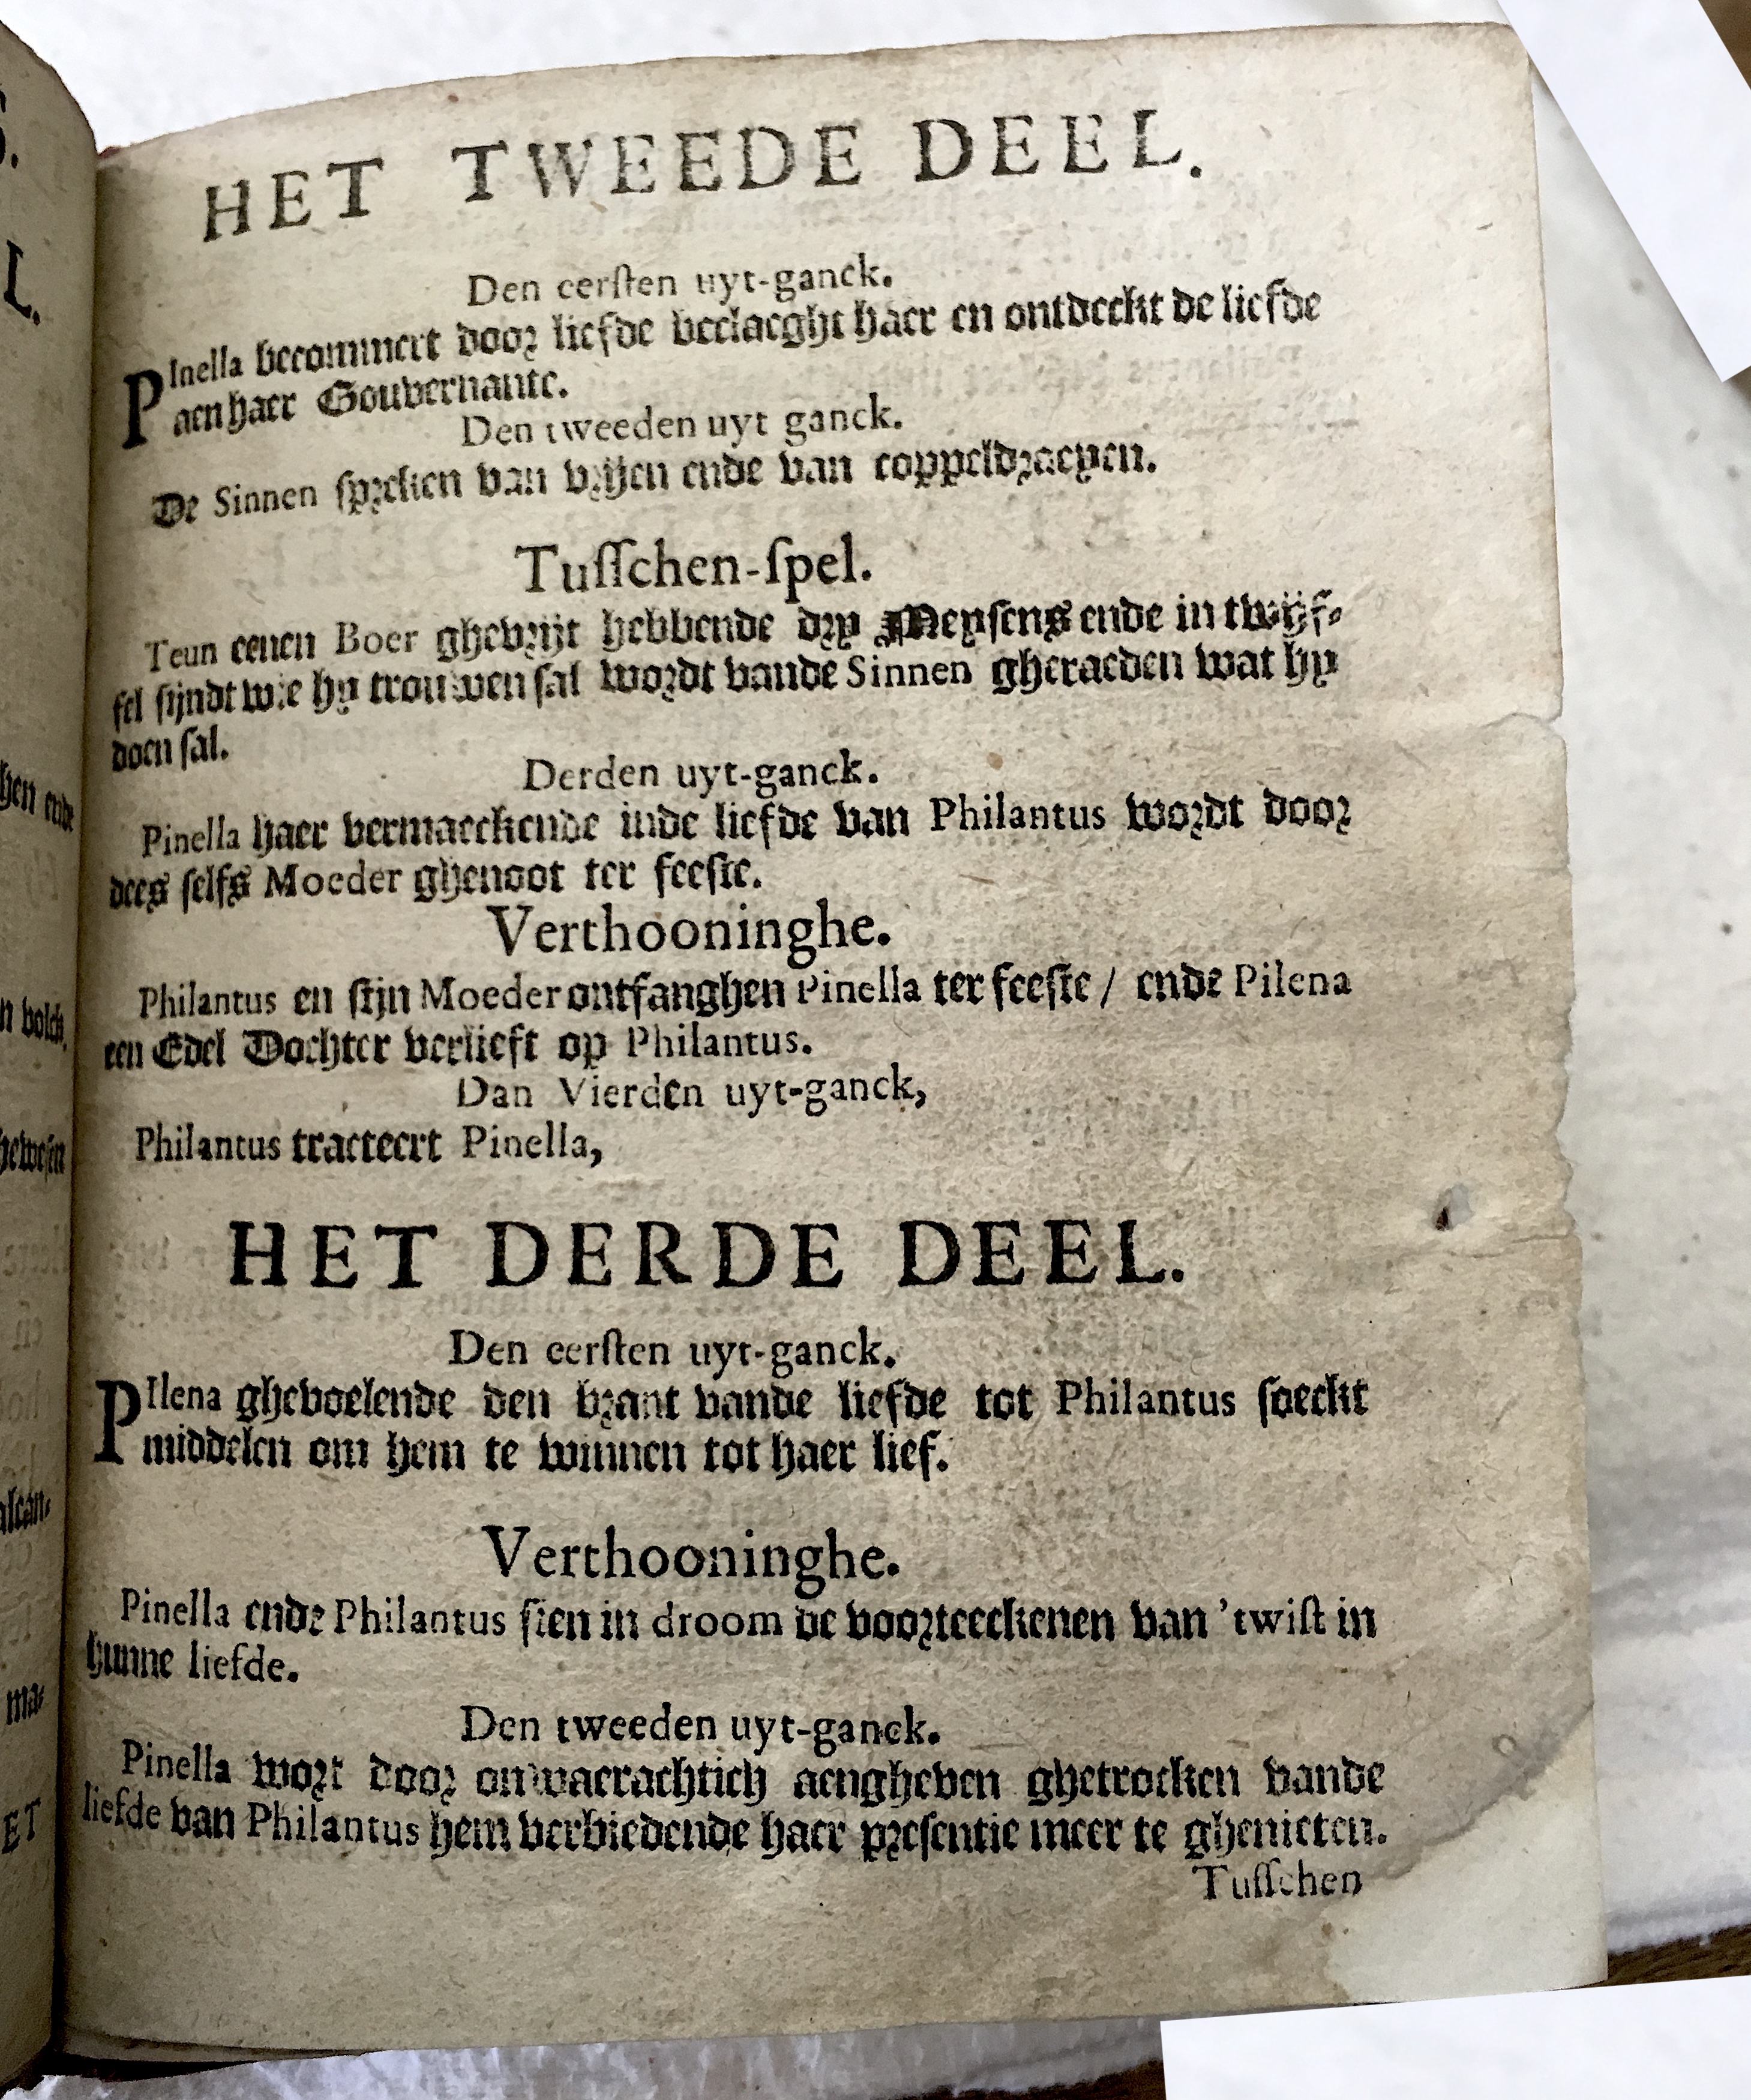 HET TWEEDE DEEL.
Den eerſten uyt-ganck.
PInella becommert door liefde beclaeght haer en ontdeckt de liefde
aen haer Gouvernante.
Den tweeden uyt ganck.
De Sinnen ſpreken van vrijen ende van coppeldraeyen.
Tuſſchen-ſpel.
Teun eenen Boer ghevrijt hebbende dry Meyſens ende in twijf-
fel ſijndt wie hy trouwen ſal wordt vande Sinnen gheraeden wat hy
doen ſal.
Derden uyt-ganck.
Pinella haer vermaeckende inde liefde van Philantus wordt door
dees ſelfs Moeder ghenoot ter feeſte.
Verthooninghe.
Philantus en ſijn Moeder ontfanghen Pinella ter feeſte / ende Pilena
een Edel Dochter verlieft op Philantus.
Dan Vierden uyt-ganck,
Philantus tracteert Pinella,
HET DERDE DEEL.
Den eerſten uyt-ganck.
PIlena ghevoelende den brant vande liefde tot Philantus ſoeckt
middelen om hem te winnen tot haer lief.
Verthooninghe.
Pinella ende Philantus ſien in droom de voorteeckenen van 'twiſt in
hunne liefde.
Den tweeden uyt-ganck.
Pinella wort door onwaerachtich aengheven ghetrocken vande
liefde van Philantus hem verbiedende haer preſentie meer te ghenieten.
Tuſſchen
S.
L.
hen ende
n volck.
hewesen
alcan-
ma-
ET